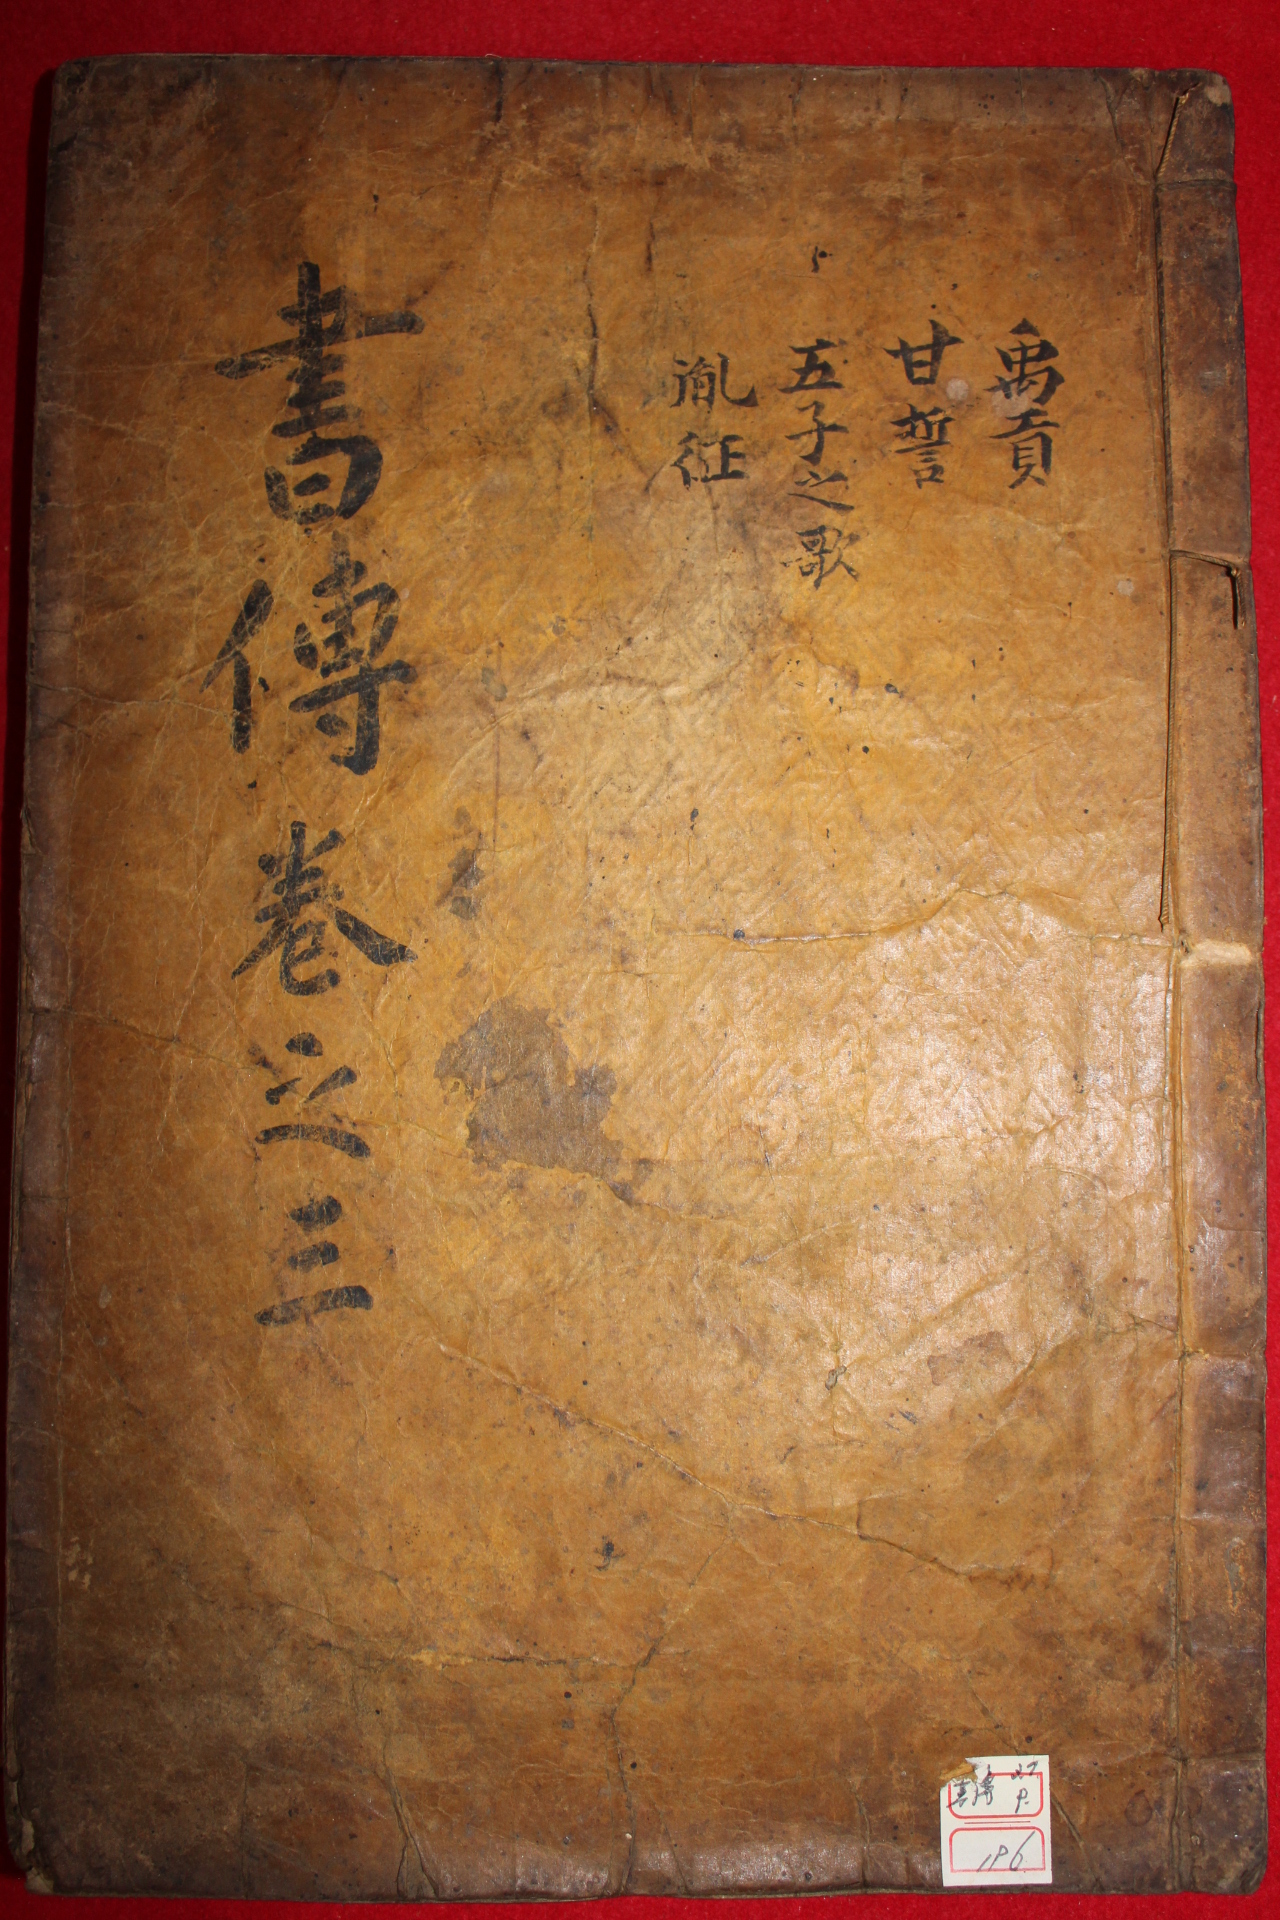 禹貢
甘誓
五子之歌
胤征
書傳卷之三
書傳
196